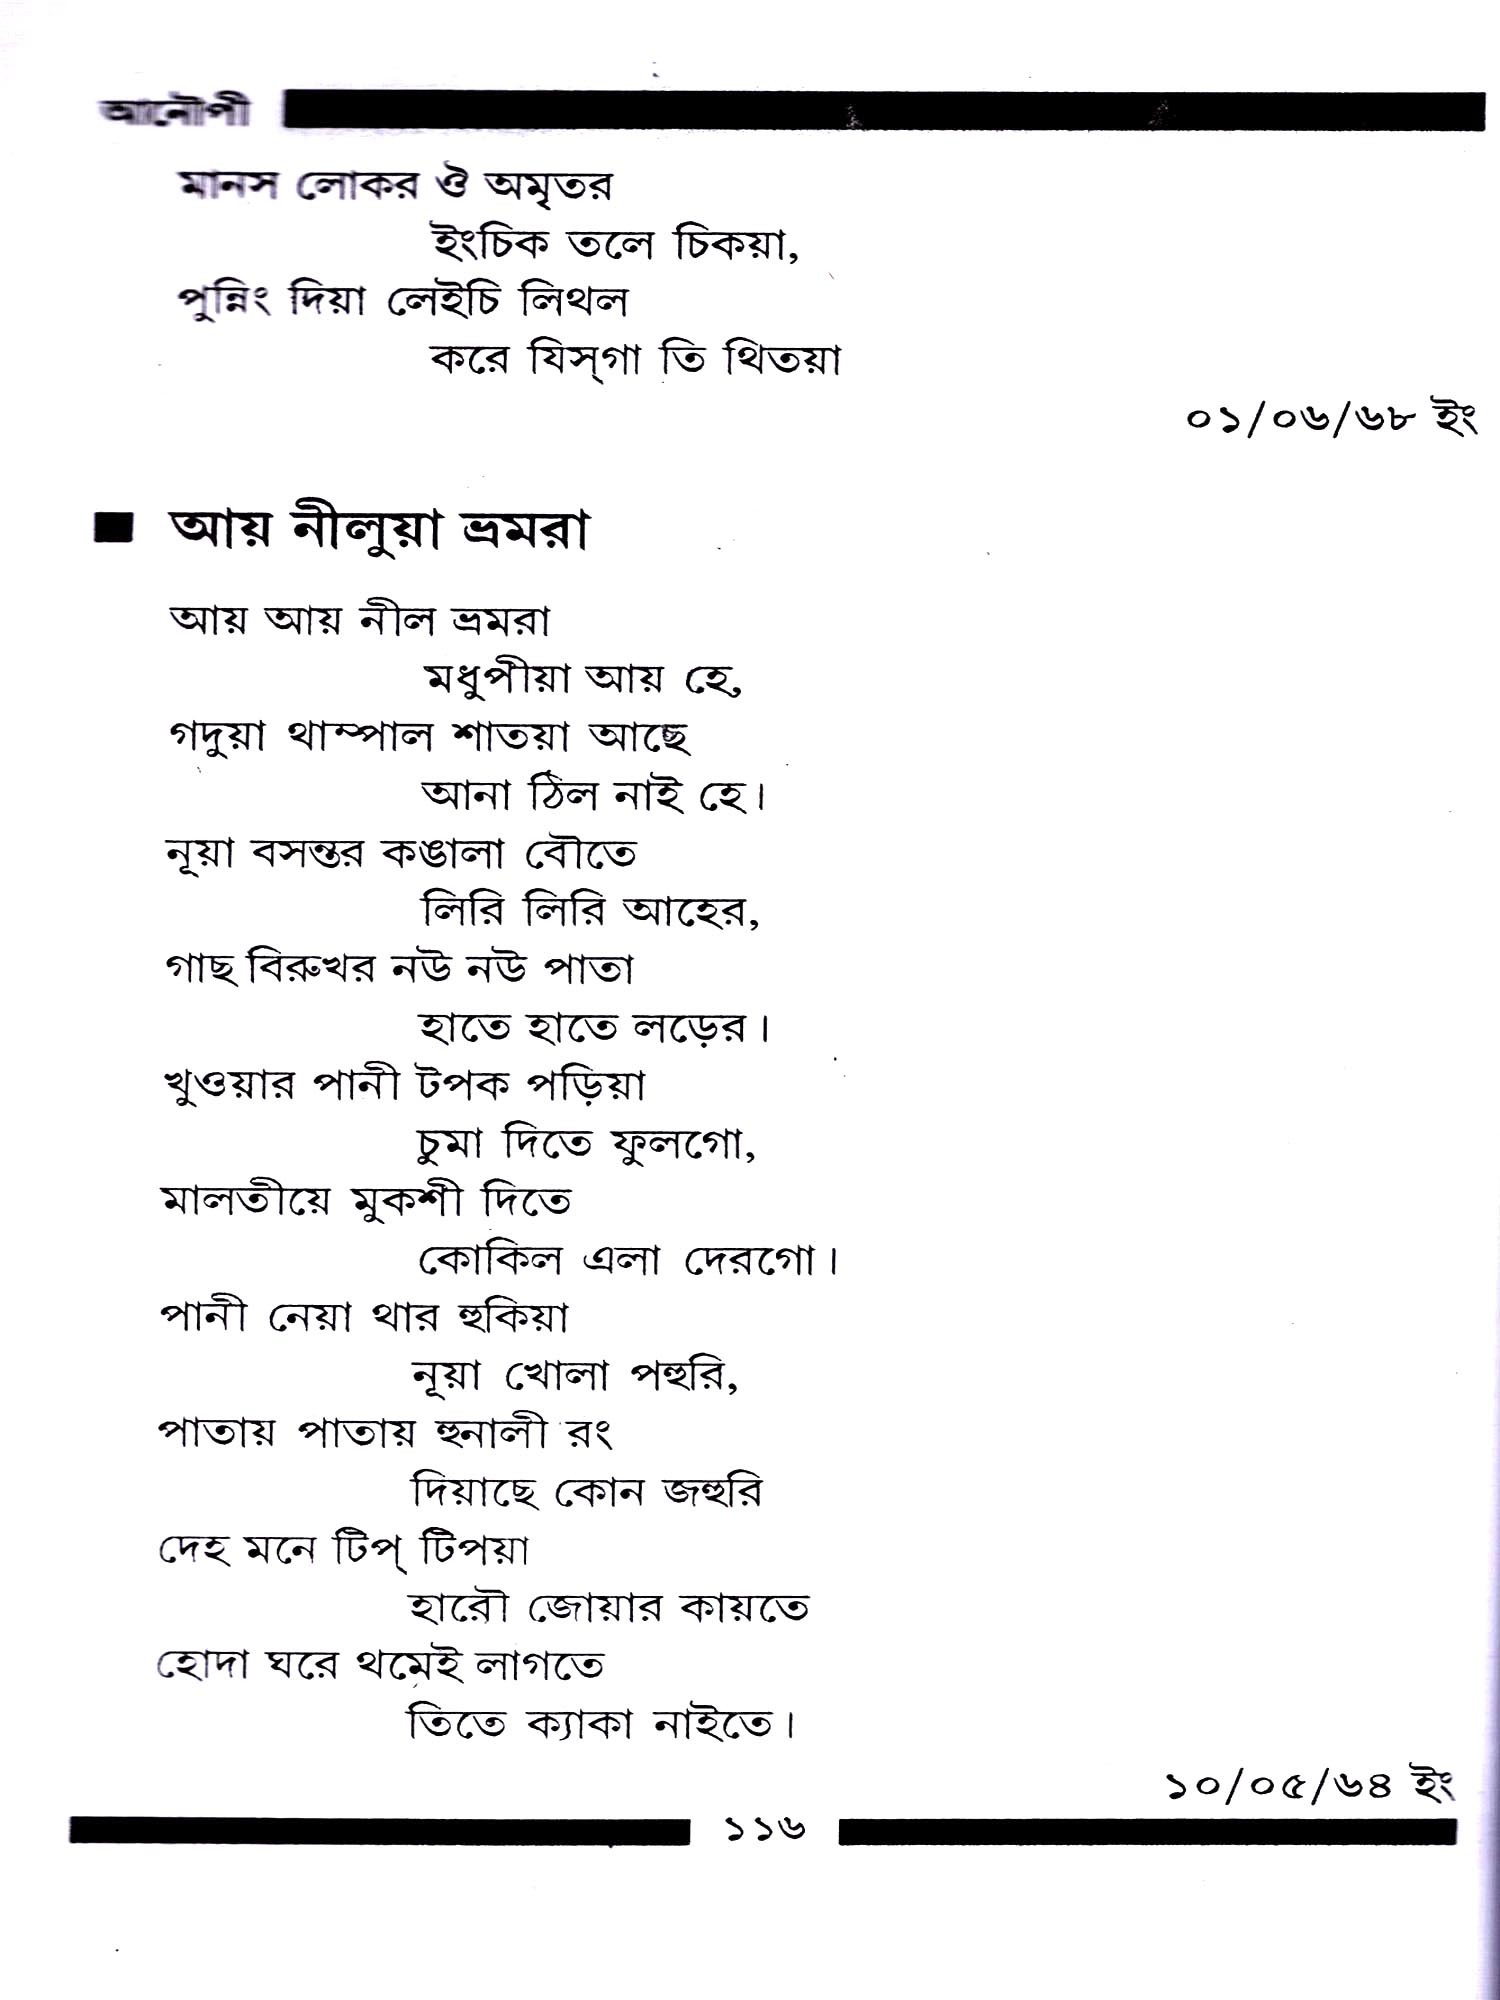 আনৌপী
মানস লোকর ঔ অমৃতর
ইংচিক তলে চিকয়া,
পুন্নিং দিয়া লেইচি লিথল
করে যিস্‌গা তি থিতয়া
০১/০৬/৬৮ ইং
■ আয় নীলুয়া ভ্রমরা
আয় আয় নীল ভ্রমরা
মধুপীয়া আয় হে,
গদুয়া থাম্পাল শাতয়া আছে
আনা ঠিল নাই হে।
নূয়া বসন্তর কঙালা বৌতে
লিরি লিরি আহের,
গাছ বিরুখর নউ নউ পাতা
হাতে হাতে লড়ের।
খুওয়ার পানী টপক পড়িয়া
চুমা দিতে ফুলগো,
মালতীয়ে মুকশী দিতে
কোকিল এলা দেরগো।
পানী নেয়া থার হুকিয়া
নূয়া খোলা পহুরি,
পাতায় পাতায় হুনালী রং
দিয়াছে কোন জহুরি
দেহ মনে টিপ্ টিপয়া
হারৌ জোয়ার কায়তে
হোদা ঘরে থমেই লাগতে
তিতে ক্যাকা নাইতে।
১০/০৫/৬৪ ইং
১১৬